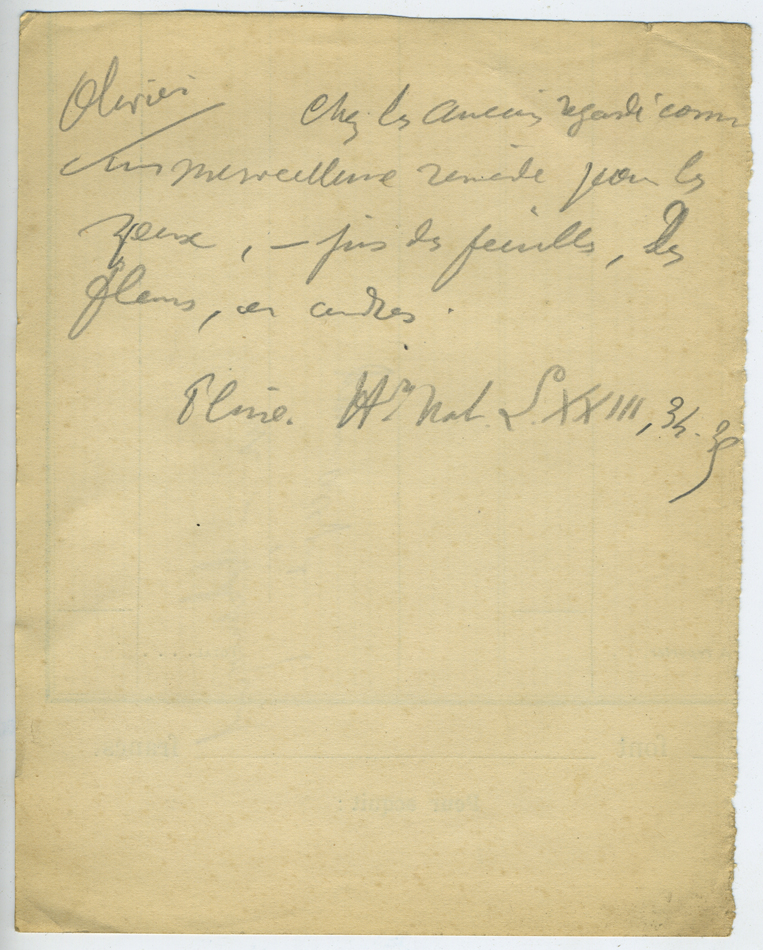 Olivier Chez les anciens regardé comme
un merveilleux remède pour les
yeux, – jus des feuilles, des
fleurs, et cendres.
Pline. Hre Nat. L. XXIII, 34.